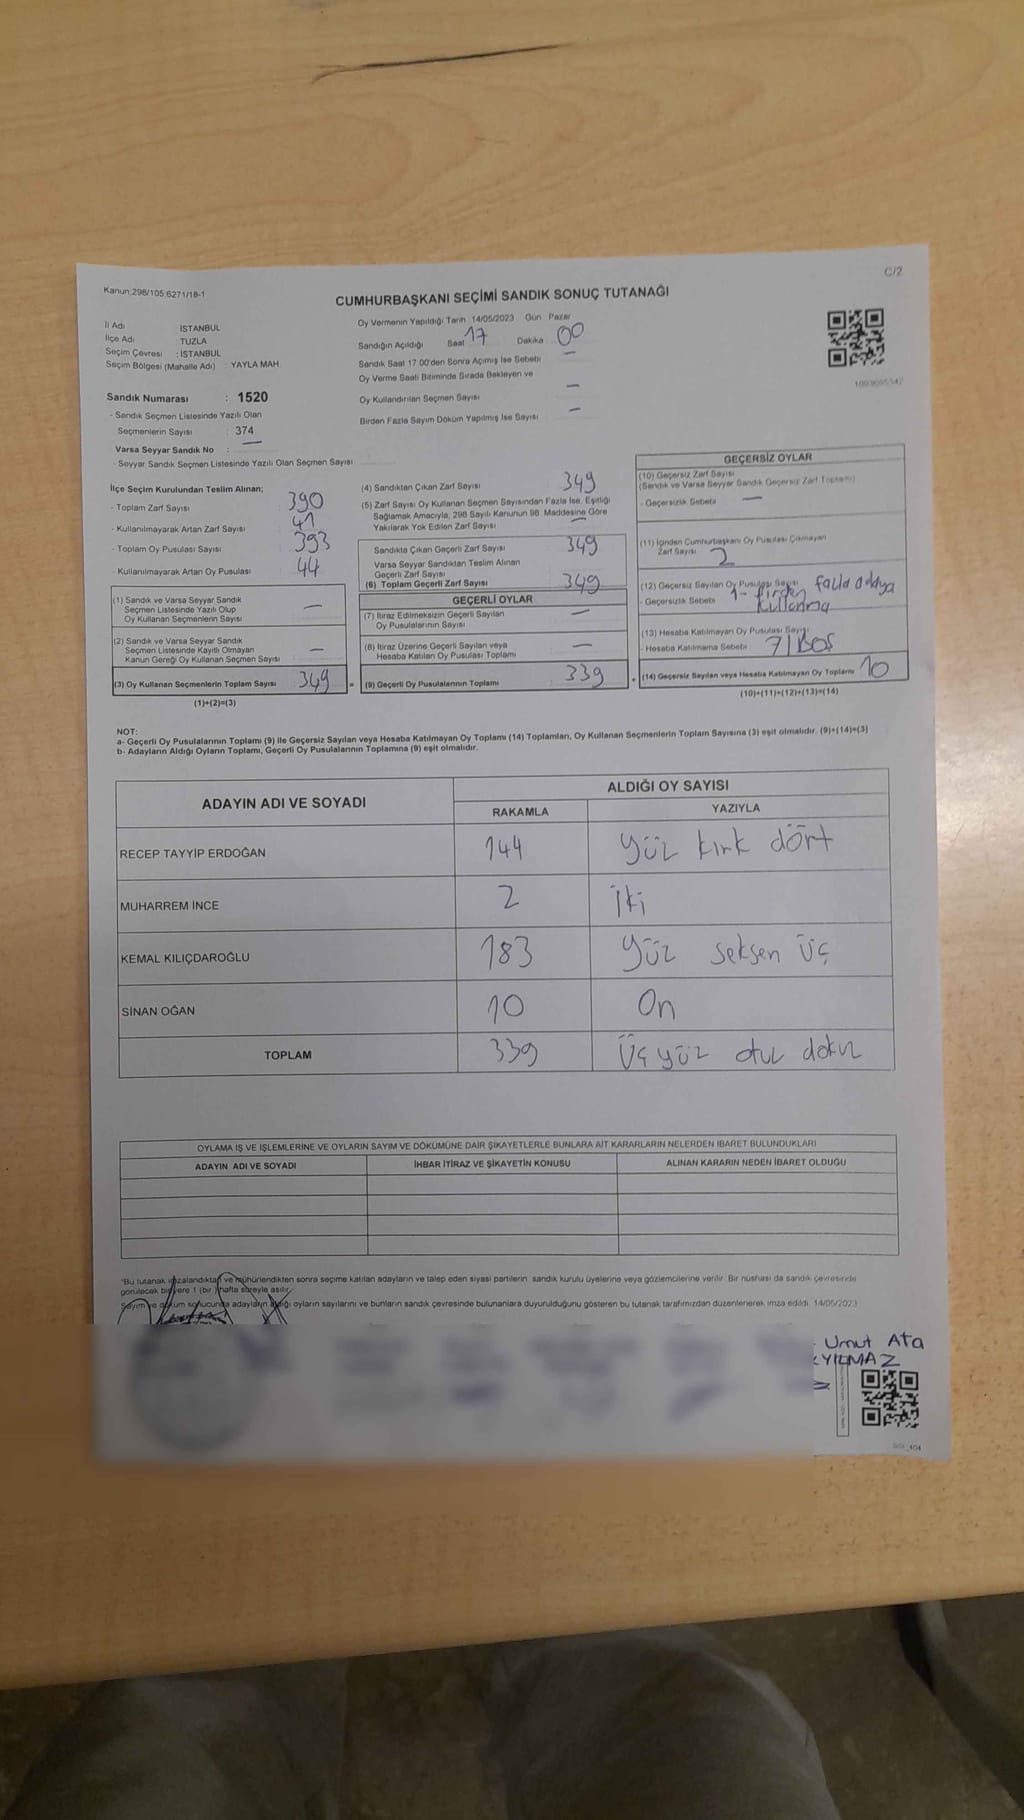 C/2
Kanun:298/105;6271/18-1
CUMHURBAŞKANI SEÇİMİ SANDIK SONUÇ TUTANAĞI
İl Adı : İSTANBUL
İlçe Adı : TUZLA
Seçim Çevresi : İSTANBUL
Seçim Bölgesi (Mahalle Adı) : YAYLA MAH
Sandık Numarası : 1520
- Sandık Seçmen Listesinde Yazılı Olan
Seçmenlerin Sayısı : 374
Varsa Seyyar Sandık No : —
- Seyyar Sandık Seçmen Listesinde Yazılı Olan Seçmen Sayısı
Oy Vermenin Yapıldığı Tarih :14/05/2023 Gün : Pazar
Sandığın Açıldığı Saat 17 Dakika 00
Sandık Saat 17:00'den Sonra Açılmış İse Sebebi —
Oy Verme Saati Bitiminde Sırada Bekleyen ve
Oy Kullandırılan Seçmen Sayısı —
Birden Fazla Sayım Döküm Yapılmış İse Sayısı —
1093605342
İlçe Seçim Kurulundan Teslim Alınan;
- Toplam Zarf Sayısı 390
- Kullanılmayarak Artan Zarf Sayısı 41
- Toplam Oy Pusulası Sayısı 393
- Kullanılmayarak Artan Oy Pusulası 44
(1) Sandık ve Varsa Seyyar Sandık
Seçmen Listesinde Yazılı Olup
Oy Kullanan Seçmenlerin Sayısı —
(2) Sandık ve Varsa Seyyar Sandık
Seçmen Listesinde Kayıtlı Olmayan
Kanun Gereği Oy Kullanan Seçmen Sayısı —
(3) Oy Kullanan Seçmenlerin Toplam Sayısı 349 =
(1)+(2)=(3)
(4) Sandıktan Çıkan Zarf Sayısı 349
(5) Zarf Sayısı Oy Kullanan Seçmen Sayısından Fazla İse, Eşitliği
Sağlamak Amacıyla, 298 Sayılı Kanunun 98. Maddesine Göre
Yakılarak Yok Edilen Zarf Sayısı —
Sandıkta Çıkan Geçerli Zarf Sayısı 349
Varsa Seyyar Sandıktan Teslim Alınan
Geçerli Zarf Sayısı
(6) Toplam Geçerli Zarf Sayısı 349
GEÇERLİ OYLAR
(7) İtiraz Edilmeksizin Geçerli Sayılan
Oy Pusulalarının Sayısı —
(8) İtiraz Üzerine Geçerli Sayılan veya
Hesaba Katılan Oy Pusulası Toplamı —
(9) Geçerli Oy Pusulalarının Toplamı 339 +
GEÇERSİZ OYLAR
(10) Geçersiz Zarf Sayısı
(Sandık ve Varsa Seyyar Sandık Geçersiz Zarf Toplamı)
- Geçersizlik Sebebi —
(11) İçinden Cumhurbaşkanı Oy Pusulası Çıkmayan
Zarf Sayısı 2
(12) Geçersiz Sayılan Oy Pusulası Sayısı
- Geçersizlik Sebebi 1- birden fazla adaya
kullanma
(13) Hesaba Katılmayan Oy Pusulası Sayısı
- Hesaba Katılmama Sebebi 7/BOŞ
(14) Geçersiz Sayılan veya Hesaba Katılmayan Oy Toplamı 10
(10)+(11)+(12)+(13)=(14)
NOT:
a- Geçerli Oy Pusulalarının Toplamı (9) ile Geçersiz Sayılan veya Hesaba Katılmayan Oy Toplamı (14) Toplamları, Oy Kullanan Seçmenlerin Toplam Sayısına (3) eşit olmalıdır. (9)+(14)=(3)
b- Adayların Aldığı Oyların Toplamı, Geçerli Oy Pusulalarının Toplamına (9) eşit olmalıdır.
ADAYIN ADI VE SOYADI ALDIĞI OY SAYISI
RAKAMLA YAZIYLA
RECEP TAYYİP ERDOĞAN 144 yüz kırk dört
MUHARREM İNCE 2 iki
KEMAL KILIÇDAROĞLU 183 yüz seksen üç
SİNAN OĞAN 10 On
TOPLAM 339 üçyüz otuz dokuz
OYLAMA İŞ VE İŞLEMLERİNE VE OYLARIN SAYIM VE DÖKÜMÜNE DAİR ŞİKAYETLERLE BUNLARA AİT KARARLARIN NELERDEN İBARET BULUNDUKLARI
ADAYIN ADI VE SOYADI İHBAR İTİRAZ VE ŞİKAYETİN KONUSU ALINAN KARARIN NEDEN İBARET OLDUĞU
*Bu tutanak imzalandıktan ve mühürlendikten sonra seçime katılan adayların ve talep eden siyasi partilerin sandık kurulu üyelerine veya gözlemcilerine verilir. Bir nüshası da sandık çevresinde
görülecek bir yere 1 (bir) hafta süreyle asılır.
Sayım ve döküm sonucunda adayların aldığı oyların sayılarını ve bunların sandık çevresinde bulunanlara duyurulduğunu gösteren bu tutanak tarafımızdan düzenlenerek imza edildi. 14/05/2023
Umut Ata
YILMAZ